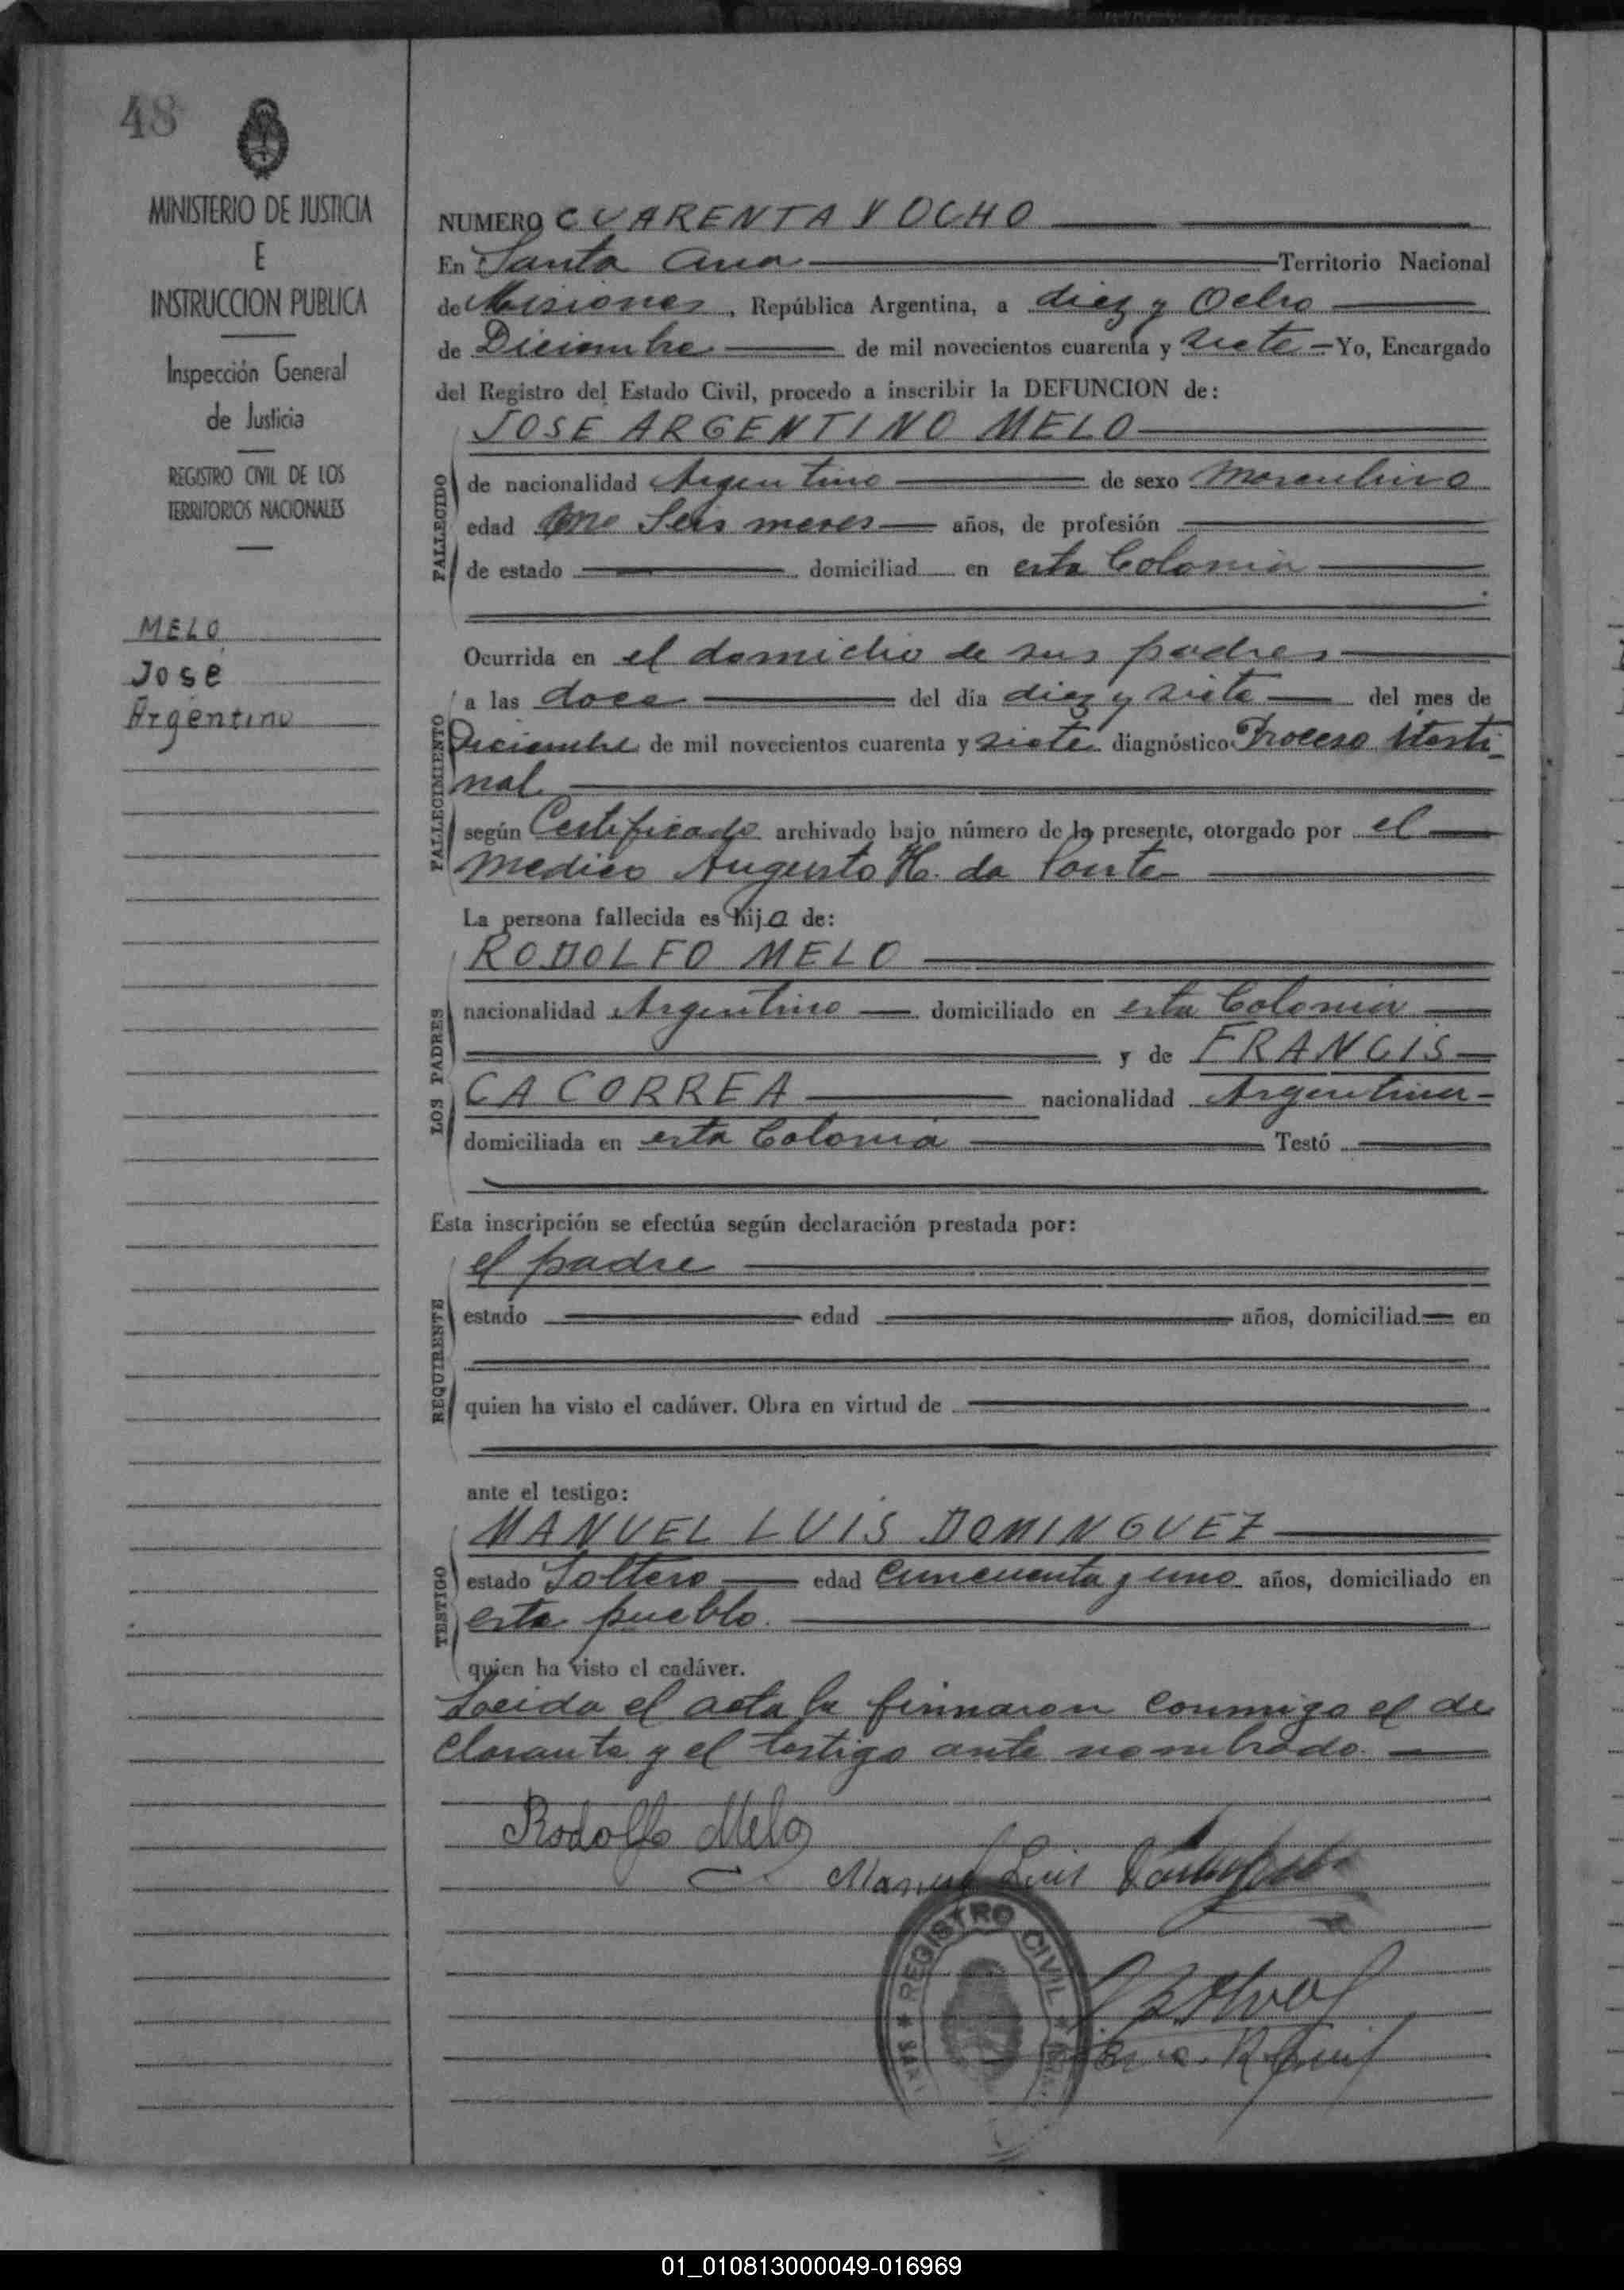 48
MINISTERIO DE JUSTICIA
E
INSTRUCCION PUBLICA
Inspección General
de Justicia
REGISTRO CIVIL DE LOS
TERRITORIOS NACIONALES
MELO
José
Argentino
NUMERO CUARENTA Y OCHO
En Santa Ana Territorio Nacional
de Misiones, República Argentina, a diez y Ocho
de Diciembre de mil novecientos cuarenta y siete Yo, Encargado
del Registro del Estado Civil, procedo a inscribir la DEFUNCION de:
JOSE ARGENTINO MELO
FALLECIDO
de nacionalidad Argentino de sexo masculino
edad Seis meses años, de profesión
de estado domiciliad en esta Colonia
Ocurrida en el domicilio de sus padres
a las doce del día diez y siete del mes de
FALLECIMIENTO
Diciembre de mil novecientos cuarenta y siete diagnóstico Proceso Itesti-
nal
según Certificado archivado bajo número de la presente, otorgado por el
medico Augusto H. da Ponte
La persona fallecida es hijo de:
RODOLFO MELO
LOS PADRES
nacionalidad Argentino domiciliado en esta Colonia
y de FRANCIS
CA CORREA nacionalidad Argentina
domiciliada en esta Colonia Testó
Esta inscripción se efectúa según declaración prestada por:
el padre
REQUIRENTE
estado edad años, domiciliad en
quien ha visto el cadáver. Obra en virtud de
ante el testigo:
MANUEL LUIS DOMINGUEZ
TESTIGO
estado Soltero edad Cincuenta y uno años, domiciliado en
este pueblo.
quien ha visto el cadáver.
Leida el acta la firmaron conmigo el de
clarante y el testigo ante nombrado.
Rodolfo Melo
Manuel Luis
REGISTRO CIVIL
01_010813000049-016969